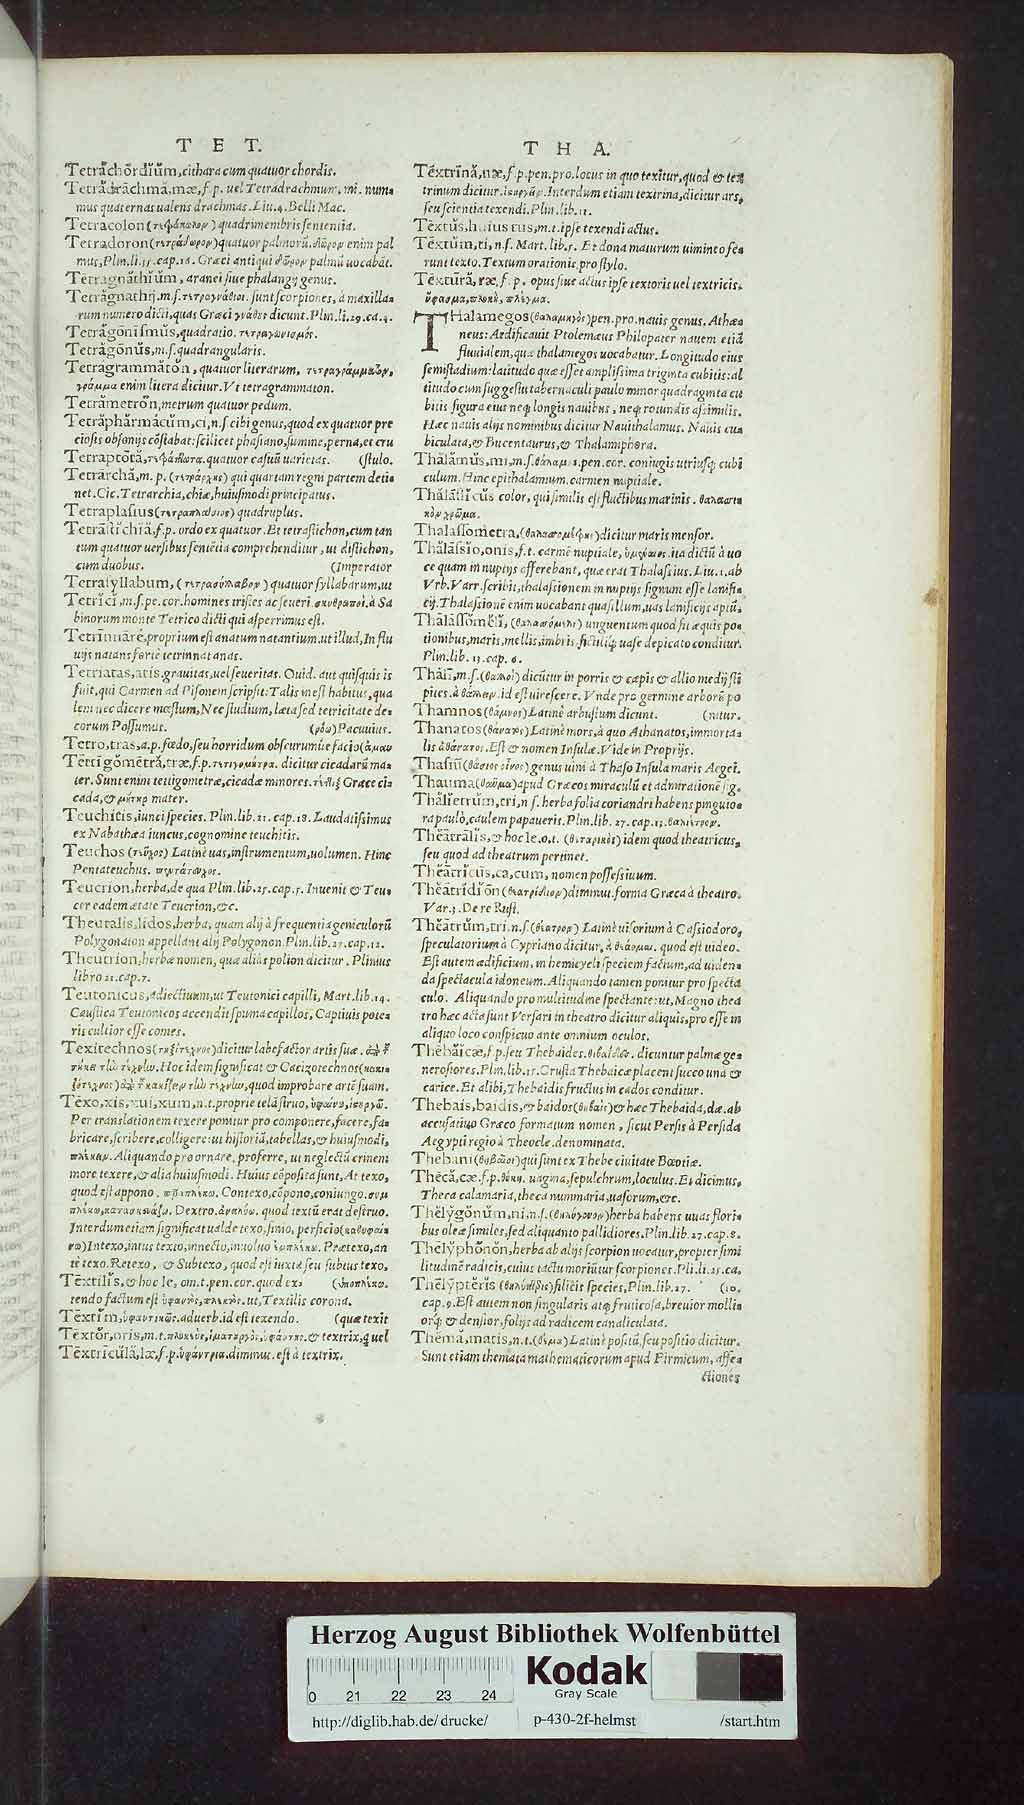 T E T.
Tetrăchōrdĭŭm, cithara cum quatuor chordis.
Tetrădrāchmă, mæ, f.p. uel Tetradrachmum, mi. num-
mus quaternas ualens drachmas. Liu. 4. Belli Mac.
Tetracolon () quadrimembris sententia.
Tetradoron (τετράδωρον) quatuor palmorū. δῶρον enim pal
mus, Plin. li. 35. cap. 14. Græci antiqui δῶρον palmū uocabāt.
Tĕtragnāthĭŭm, aranei siue phalangij genus.
Tetrăgnathij. m.s. τετραγνάθιοι. sunt scorpiones, à maxilla-
rum numero dicti, quas Græci γνάθες dicunt. Plin. li. 29. ca. 4.
Tetrăgōnĭsmŭs, quadratio. τετραγωνισμός.
Tetrăgōnŭs, m.s. quadrangularis.
Tetragrammătŏn, quatuor literarum, τετραγράμματον,
γράμμα enim litera dicitur. Vt tetragrammaton.
Tetrămetrŏn, metrum quatuor pedum.
Tetrăphărmăcŭm, ci, n.s. cibi genus, quod ex quatuor pre
ciosis obsonijs cōstabat: scilicet phasiano, sumine, perna, et cru
Tetraptōtă, τετράπτωτα. quatuor casuū uarietas. (stulo.
Tetrarchă, m. p. (τετράρχης) qui quartam regni partem deti-
net. Cic. Tetrarchia, chiæ, huiusmodi principatus.
Tetraplasius (τετραπλάσιος) quadruplus.
Tetrāstĭchĭă, f.p. ordo ex quatuor. Et tetrastichon, cum tan
tum quatuor uersibus sentētia comprehenditur, ut distichon,
cum duobus. (Imperator
Tetrasyllabum, (τετρασύλλαβον) quatuor syllabarum, ut
Tetrĭci, m.s. pe. cor. homines tristes ac seueri. σκυθρωποί, à Sa
binorum monte Tetrico dicti qui asperrimus est.
Tetrĭnnīre, proprium est anatum natantium. ut illud, In flu
uijs natans feriè tetrinnat anas.
Tetricitas, atis, grauitas, uel seueritas. Ouid. aut quisquis is
fuit, qui Carmen ad Pisonem scripsit: Talis inest habitus, qua
lem nec dicere mœstum, Nec fluidum, læta sed tetricitate de-
corum Possumus. Pacuuius.
Tetro, tras, a.p. fœdo, seu horridum obscurumue facio (ἀμαυ
Tĕttĭgŏmētră, træ, f.p. τεττιγομήτρα. dicitur cicadarū ma-
ter. Sunt enim tettigometræ, cicadæ minores. τέττιξ Græce ci-
cada, & μήτηρ mater.
Teuchitis, iunci species. Plin. lib. 21. cap. 18. Laudatissimus
ex Nabathæa iuncus, cognomine teuchitis.
Teuchos (τεῦχος) Latinè uas, instrumentum, uolumen. Hinc
Pentateuchus. πεντάτευχος.
Teucrion, herba, de qua Plin. lib. 25. cap. 5. Inuenit & Teu-
cer eadem ætate Teucrion, &c.
Theutalis, lidos, herba, quam alij à frequentia geniculorū
Polygonaton appellant alij Polygonon. Plin. lib. 27. cap. 12.
Theutrion, herbæ nomen, quæ aliàs polion dicitur. Plinius
libro 21. cap. 7.
Teutonicus, adiectiuum, ut Teutonici capilli, Mart. lib. 14.
Caustica Teutonicos accendit spuma capillos, Captiuis pote-
ris cultior esse comes.
Texitechnos (τηξίτεχνος) dicitur labefactor artis suæ.
Hoc idem significat & Cacizotechnos (κακι
ζότεχνος) quod improbare artē suam.
Tēxo, xis, xui, xum, n.t. proprie telā struo, ὑφαίνω, ἱστουργῶ.
Per translationem texere ponitur pro componere, facere, fa-
bricare, scribere, colligere: ut historiā, tabellas, & huiusmodi,
πλέκειν. Aliquando pro ornare, proferre, ut neglectū crimen
more texere, & alia huiusmodi. Huius cōposita sunt, At texo,
quod est appono. Contexo, cōpono, coniungo. συμ
πλέκω, κατασκευάζω. Dextro. ἀναλύω. quod textū erat destruo.
Interdum etiam significat ualde texo, finio, perficio (καθυφαί-
νω) Intexo, intus texto, innecto, inuoluo ἐμπλέκω. Prætexo, an
tè texo. Retexo, & Subtexo, quod est iuxtà seu subtus texo,
Tēxtĭlĭs, & hoc le, om.t. pen. cor. quod ex- (ὑποπλέκω.
tendo factum est ὑφαντὸς, πλεκτός. ut, Textilis corona.
Tēxtĭm, ὑφαντικῶς. aduerb. id est texendo. (quæ texit
Tēxtŏr, oris, m.t. πλοκεὺς, ἱματουργὸς, ὑφάντης. & textrix, q uel
Tēxtrīcŭlă, læ, f.p. ὑφάντρια. diminut. est à textrix.
T H A.
Tēxtrīnă, næ, f p. pen. pro. locus in quo texitur, quod & tex
trinum dicitur. Interdum etiam textrina, dicitur ars,
seu scientia texendi. Plin. lib. 11.
Tēxtŭs, huius tus, m.t. ipse texendi actus.
Tēxtŭm, ti, n.s. Mart. lib. 5. Et dona maturum uimine fe-
runt texto. Textum orationis, pro stylo.
Tēxtūră, ræ, f. p. opus siue actus ipse textoris uel textricis.
ὕφασμα, πλοκὴ, πλέγμα.
THalamegos (θαλαμηγὸς) pen. pro. nauis genus. Athæ-
neus: Aedificauit Ptolemæus Philopater nauem etiā
fluuialem, quæ thalamegos uocabatur. Longitudo eius
semistadium: latitudo quæ esset amplissima triginta cubitis: al
titudo cum suggestu tabernaculi paulo minor quadraginta cu
bitis figura eius neq; longis nauibus, neq; rotundis assimilis.
Hæc nauis alijs nominibus dicitur Nauithalamus. Nauis cu-
biculata, & Bucentaurus, & Thalamiphora.
Thălămŭs, mi, m.s. θάλαμος. pen. cor. coniugis utriusq; cubi
culum. Hinc epithalamium. carmen nuptiale.
Thălāssĭcŭs color, qui similis est fluctibus marinis. θαλασσι
κὸν χρῶμα.
Thalassŏmetra, (θαλασσομέτρης) dicitur maris mensor.
Thălāssĭo, onis, f.t. carmē nuptiale, ὑμέναιος. ita dictū à uo
ce quam in nuptijs afferebant, quæ erat Thalassius. Liu. 1. ab
Vrb. Varr. scribit, thalassionem in nuptijs signum esse lanifi-
cij. Thalassionē enim uocabant quasillum, uas lanificijs aptū.
Thălāssŏmĕlĭ, (θαλασσόμελι) unguentum quod fit æquis por-
tionibus, maris, mellis, imbris. fictiliq; uase depicato conditur.
Plin. lib. 31. cap. 6.
Thălĭ, m.s. (θαλλοὶ) dicūtur in porris & cæpis & allio medij sti
pites. à θάλλειν. id est uirescere. Vnde pro germine arborē po
Thamnos (θάμνος) Latinè arbustum dicunt. (nitur.
Thanatos (θάνατος) Latinè mors, à quo Athanatos, immorta-
lis ἀθάνατος. Est & nomen Insulæ. Vide in Proprijs.
Thasiū (θάσιος οἶνος) genus uini à Thaso Insula maris Aegei.
Thauma (θαῦμα) apud Græcos miraculū et admirationē sig.
Thălĭetrŭm, tri, n s. herba folia coriandri habens pinguio-
ra paulo, caulem papaueris. Plin. lib. 27. cap. 13. θαλίετρον.
Thĕātrālĭs, & hoc le. o.t. (θεατρικὸς) idem quod theatricus,
seu quod ad theatrum pertinet.
Thĕātrĭcŭs, ca, cum, nomen possessiuum.
Thĕātrĭdĭŏn (θεατρίδιον) diminut. forma Græca à theatro.
Var. 3. De re Rust.
Thĕātrŭm, tri. n.s. (θέατρον) Latinè uisorium à Cassiodoro,
speculatorium à Cypriano dicitur, à θεάομαι. quod est uideo.
Est autem ædificium, in hemicycli speciem factum, ad uiden-
da spectacula idoneum. Aliquando tamen ponitur pro specta
culo. Aliquando pro multitudine spectante: ut, Magno thea
tro hæc acta sunt Versari in theatro dicitur aliquis, pro esse in
aliquo loco conspicuo ante omnium oculos.
Thēbăicæ, f.p. seu Thebaides. θηβαΐδες. dicuntur palmæ ge-
nerosiores. Plin. lib. 15. Crusta Thebaicæ placent succo uua &
carice. Et alibi, Thebaidis fructus in cados conditur.
Thebais, baidis, & baidos (θηβαῒς) & hæc Thebaida, dæ. ab
accusatiuo Græco formatum nomen, sicut Persis à Persida
Aegypti regio à Theocle. denominata.
Thebani (θηβαῖοι) qui sunt ex Thebe ciuitate Bœotiæ.
Thēcă, cæ. f.p. θήκη. uagina, sepulchrum, loculus. Et dicimus,
Theca calamaria, theca nummaria, uasorum, &c.
Thĕlўgŏnŭm, ni. n.s. (θηλύγονον) herba habens uuas flori-
bus oleæ similes, sed aliquanto pallidiores. Plin. lib. 27. cap. 8.
Thĕlўphŏnŏn, herba ab alijs scorpion uocatur, propter simi
litudinē radicis, cuius tactu moriūtur scorpiones. Pli. li. 25. ca.
Thēlўptĕrĭs (θηλυπτερὶς) filicis species, Plin. lib. 27. (10.
cap. 9. Est autem non singularis atq; fruticosa, breuior mollis
orq; & densior, folijs ad radicem canaliculata.
Thĕmă, matis, n.t. (θέμα) Latinè positū, seu positio dicitur.
Sunt etiam themata mathematicorum apud Firmicum, affe-
ctiones
Herzog August Bibliothek Wolfenbüttel
0 21 22 23 24
Kodak
Gray Scale
http://diglib.hab.de/drucke/ p-430-2f-helmst /start.htm